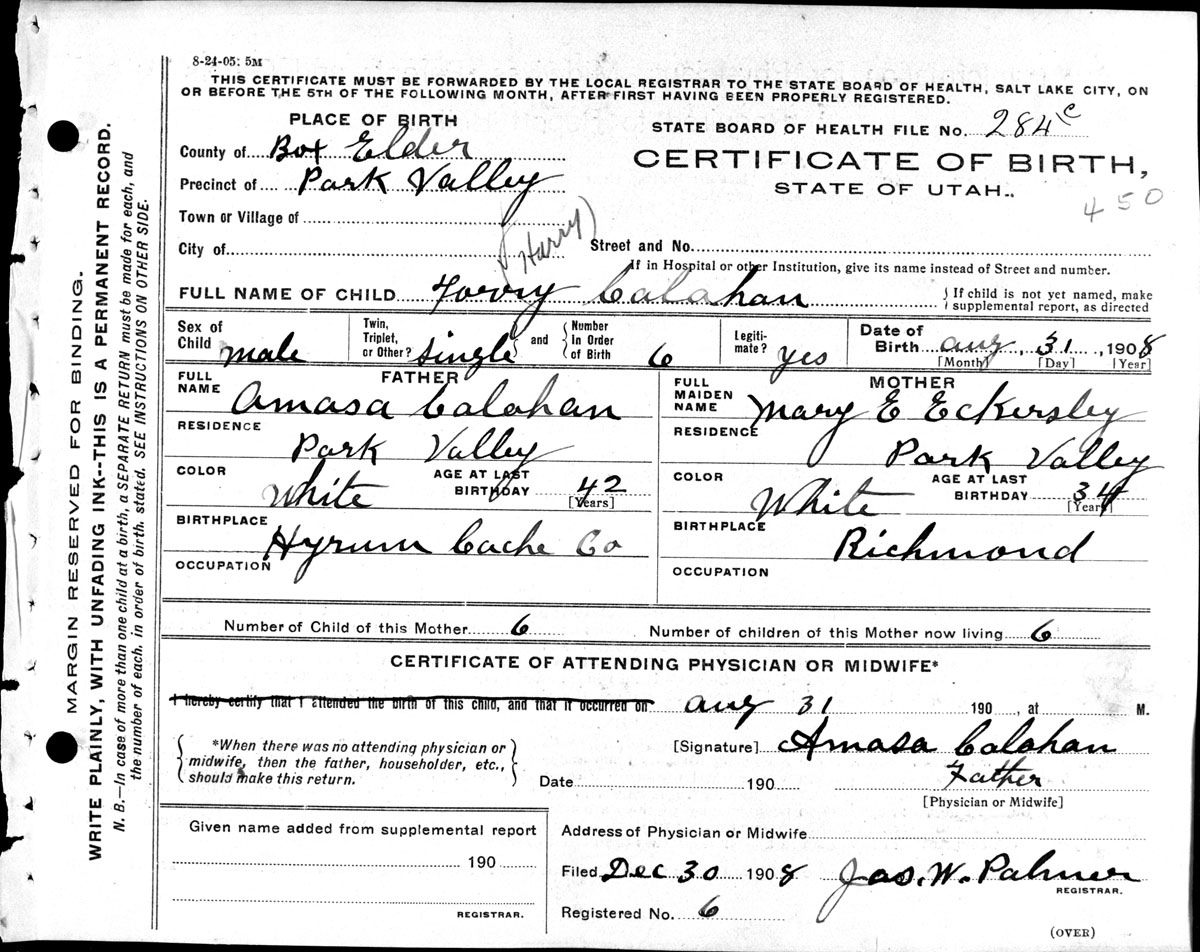 8-24-05: 5M
THIS CERTIFICATE MUST BE FORWARDED BY THE LOCAL REGISTRAR TO THE STATE BOARD OF HEALTH, SALT LAKE CITY, ON
OR BEFORE THE 5TH OF THE FOLLOWING MONTH, AFTER FIRST HAVING BEEN PROPERLY REGISTERED.
PLACE OF BIRTH
STATE BOARD OF HEALTH FILE No. 284 c
County of Box Elder
CERTIFICATE OF BIRTH,
Precinct of Park Valley
STATE OF UTAH.
450
Town or Village of
(Harry)
City of Street and No.
If in Hospital or other Institution, give its name instead of Street and number.
FULL NAME OF CHILD Calahan { If child is not yet named, make
supplemental report, as directed
Sex of Child male Twin, Triplet, or Other? single and Number In Order of Birth 6 Legitimate? yes Date of Birth Aug, 31, 1908
[Month] [Day] [Year]
FATHER MOTHER
FULL NAME Amasa Calahan FULL MAIDEN NAME Mary E Eckersley
RESIDENCE Park Valley RESIDENCE Park Valley
COLOR White AGE AT LAST BIRTHDAY 42 [Years] COLOR White AGE AT LAST BIRTHDAY 34 [Years]
BIRTHPLACE Hyrum Cache Co BIRTHPLACE Richmond
OCCUPATION OCCUPATION
Number of Child of this Mother 6 Number of children of this Mother now living 6
CERTIFICATE OF ATTENDING PHYSICIAN OR MIDWIFE*
I hereby certify that I attended the birth of this child, and that it occurred on Aug 31 190 , at M.
{ *When there was no attending physician or
midwife, then the father, householder, etc.,
should make this return. }
[Signature] Amasa Calahan
Father
Date 190
[Physician or Midwife]
Given name added from supplemental report
190
REGISTRAR.
Address of Physician or Midwife
Filed Dec 30 1908 Jas. W. Palmer
REGISTRAR.
Registered No. 6
(OVER)
MARGIN RESERVED FOR BINDING.
WRITE PLAINLY, WITH UNFADING INK--THIS IS A PERMANENT RECORD.
N. B.—In case of more than one child at a birth, a SEPARATE RETURN must be made for each, and
the number of each, in order of birth, stated. SEE INSTRUCTIONS ON OTHER SIDE.